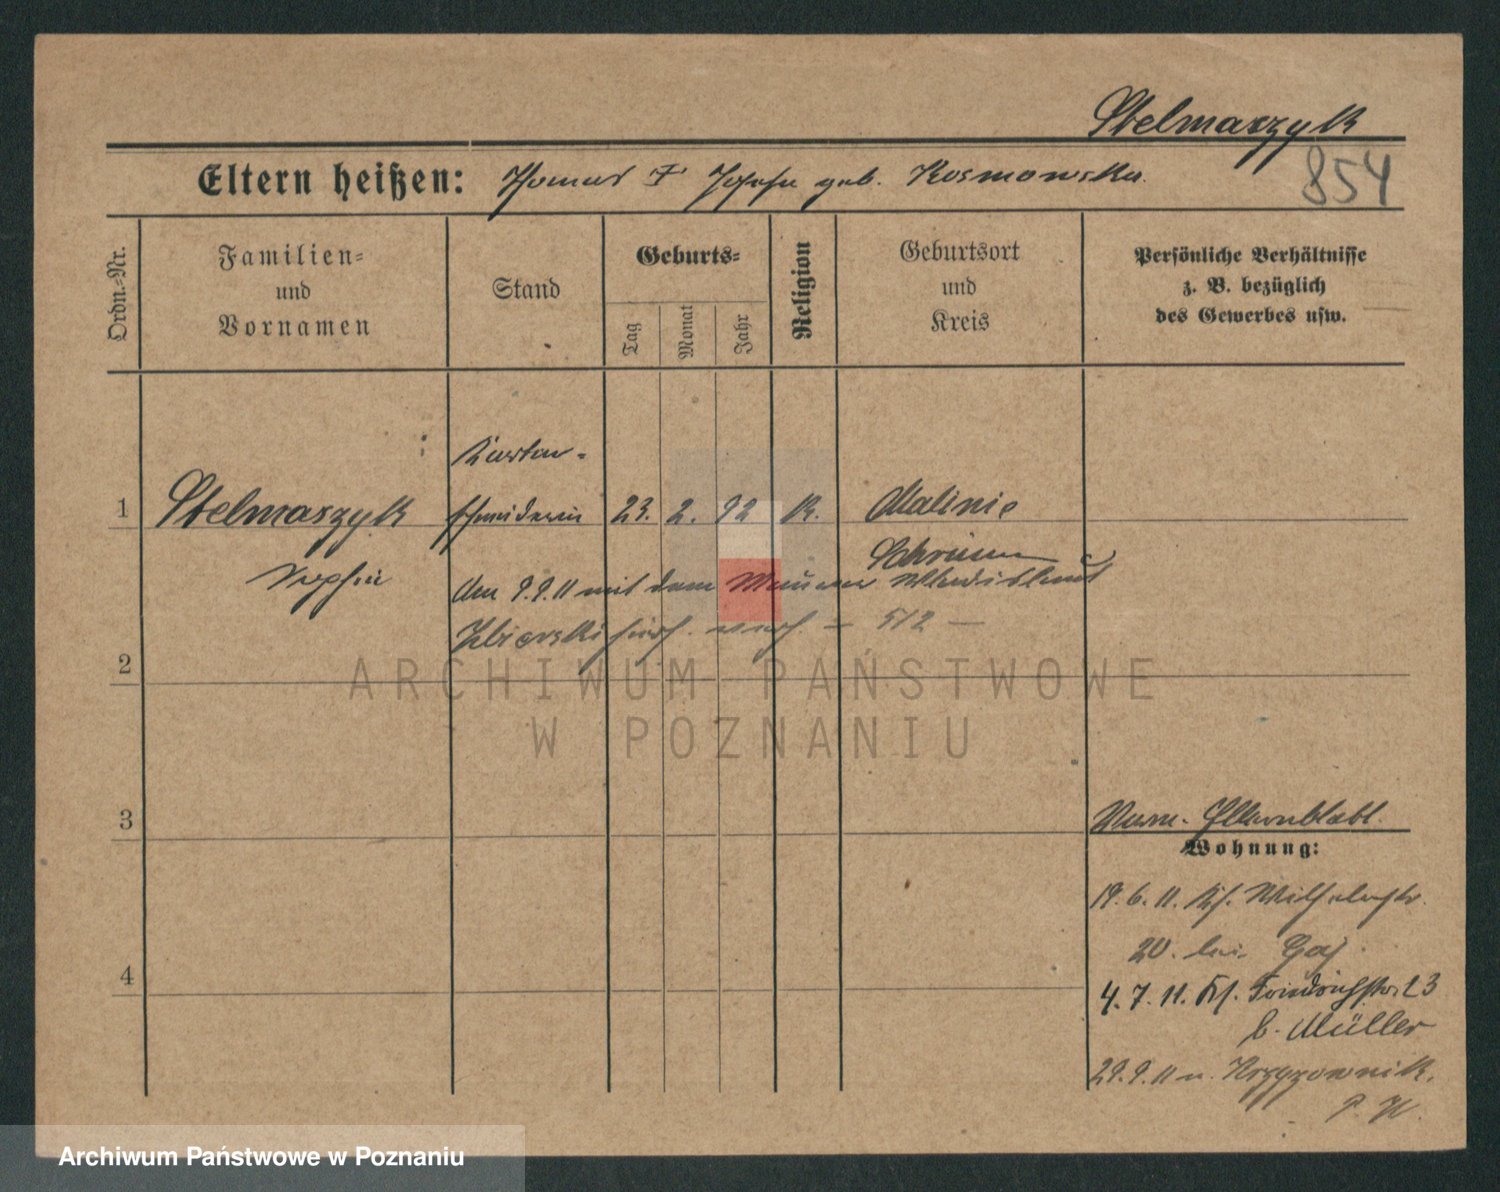 Stelmaszyk
854
Eltern heißen: Thomas † Josefa geb. Kosmowska.
Ordn.=Nr.
Familien=
und
Vornamen
Stand
Geburts=
Tag
Monat
Jahr
Religion
Geburtsort
und
Kreis
Persönliche Verhältnisse
z. B. bezüglich
des Gewerbes usw.
1
Stelmaszyk
Sophie
schneiderin
23. 2. 92 K.
Malinie
Schrimm
Am 9.9.11 mit dem Maurer Wladislaus
verh. – 512 –
2
3
4
Verm. Elternblatt.
Wohnung:
19.6.11. Wilhelmstr.
20. bei Gaj.
4.7.11. Friedrichstr. 23
b. Müller
29.9.11 n. Krzyzownik.
P. W.
ARCHIWUM PAŃSTWOWE
W POZNANIU
Archiwum Państwowe w Poznaniu